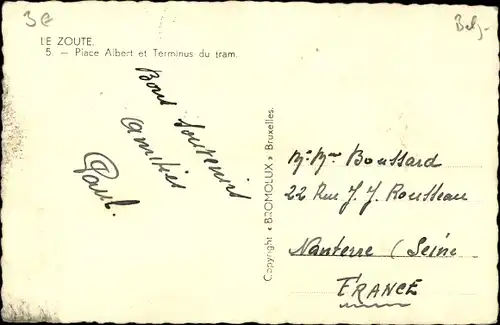 3e
Belg.
LE ZOUTE.
5. — Place Albert et Terminus du tram.
Bons souvenirs
amitiés
Paul.
Copyright « BROMOLUX » Bruxelles.
Mr Mme Boussard
22 Rue J. J. Rousseau
Nanterre (Seine
FRANCE